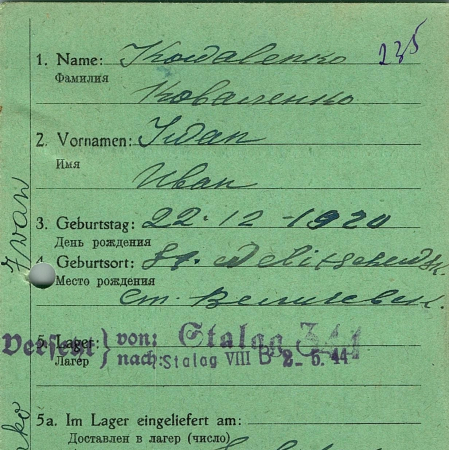 235
1. Name: Kowalenko
Фамилия
Коваленко
2. Vornamen: Iwan
Имя
Иван
3. Geburtstag: 22. 12 - 1920
День рождения
4. Geburtsort: St.
Место рождения
Ст.
5. Lager: Versetzt von: Stalag 344
Лагер nach: Stalag VIII B 2. 5. 44
5a. Im Lager eingeliefert am:
Доставлен в лагер (число)
Iwan
nko